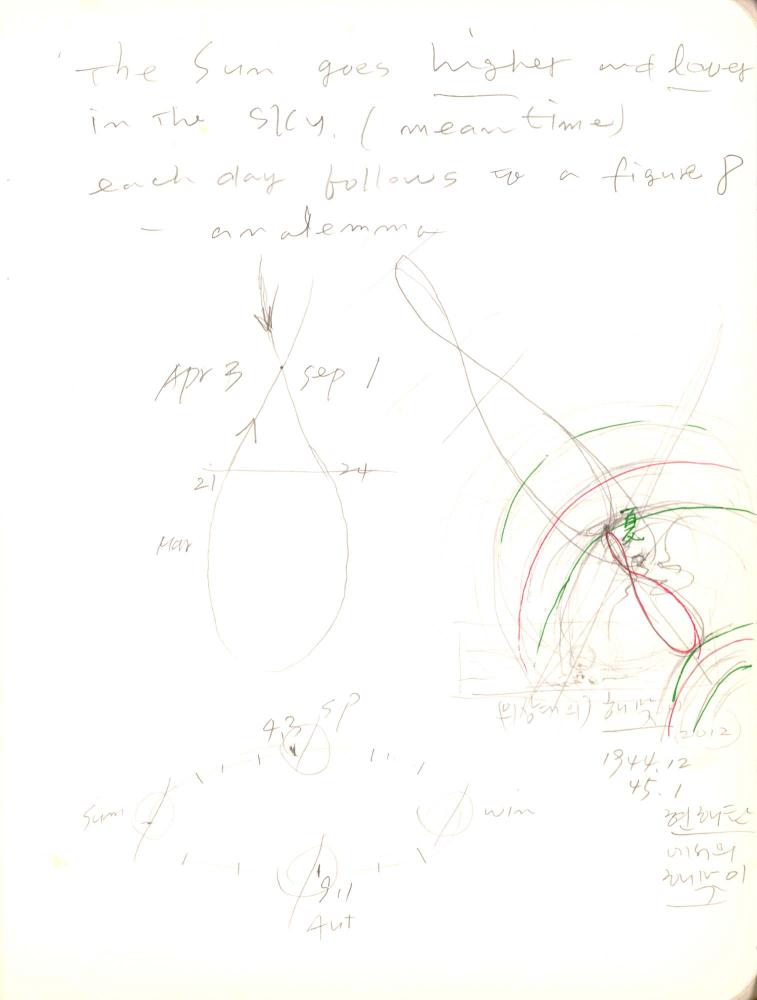 The Sun goes higher and lower
in The SKY. (mean time)
each day follows to a figure 8
- analemma
Apr 3 Sep 1
21 24
Mar
夏
2012
1944.12
45.1
4,3 SP
Sum
win
9,1
Aut